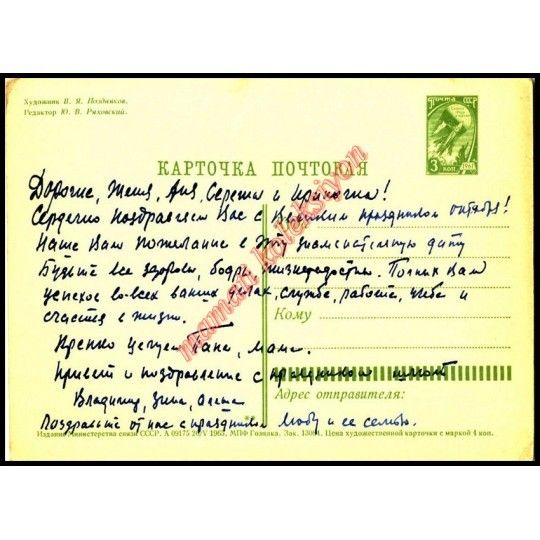 Художник В. Я. Поздняков.
Редактор Ю. В. Ряховский.
ПОЧТА СССР
3 КОП. 1961
КАРТОЧКА ПОЧТОВАЯ
Дорогие, Женя, Аня, Сережа и Ириночка!
Сердечно поздравляем Вас с Великим праздником октября!
Наше Вам пожелание в эту знаменательную дату
Будьте все здоровы, бодры жизнерадостны. Полных Вам
успехов во всех ваших делах, службе, работе, учебе и
счастья в жизни.
Кому
Крепко целуем Папа, Мама.
Привет и поздравление с праздником шлют
Владимир, Зина,
Адрес отправителя:
Поздравьте от нас с праздником Любу и ее семью.
Издание Министерства связи СССР. А 09175 20/V 1963. МПФ Гознака. Зак. Цена художественной карточки с маркой 4 коп.
mamati koleksiyon